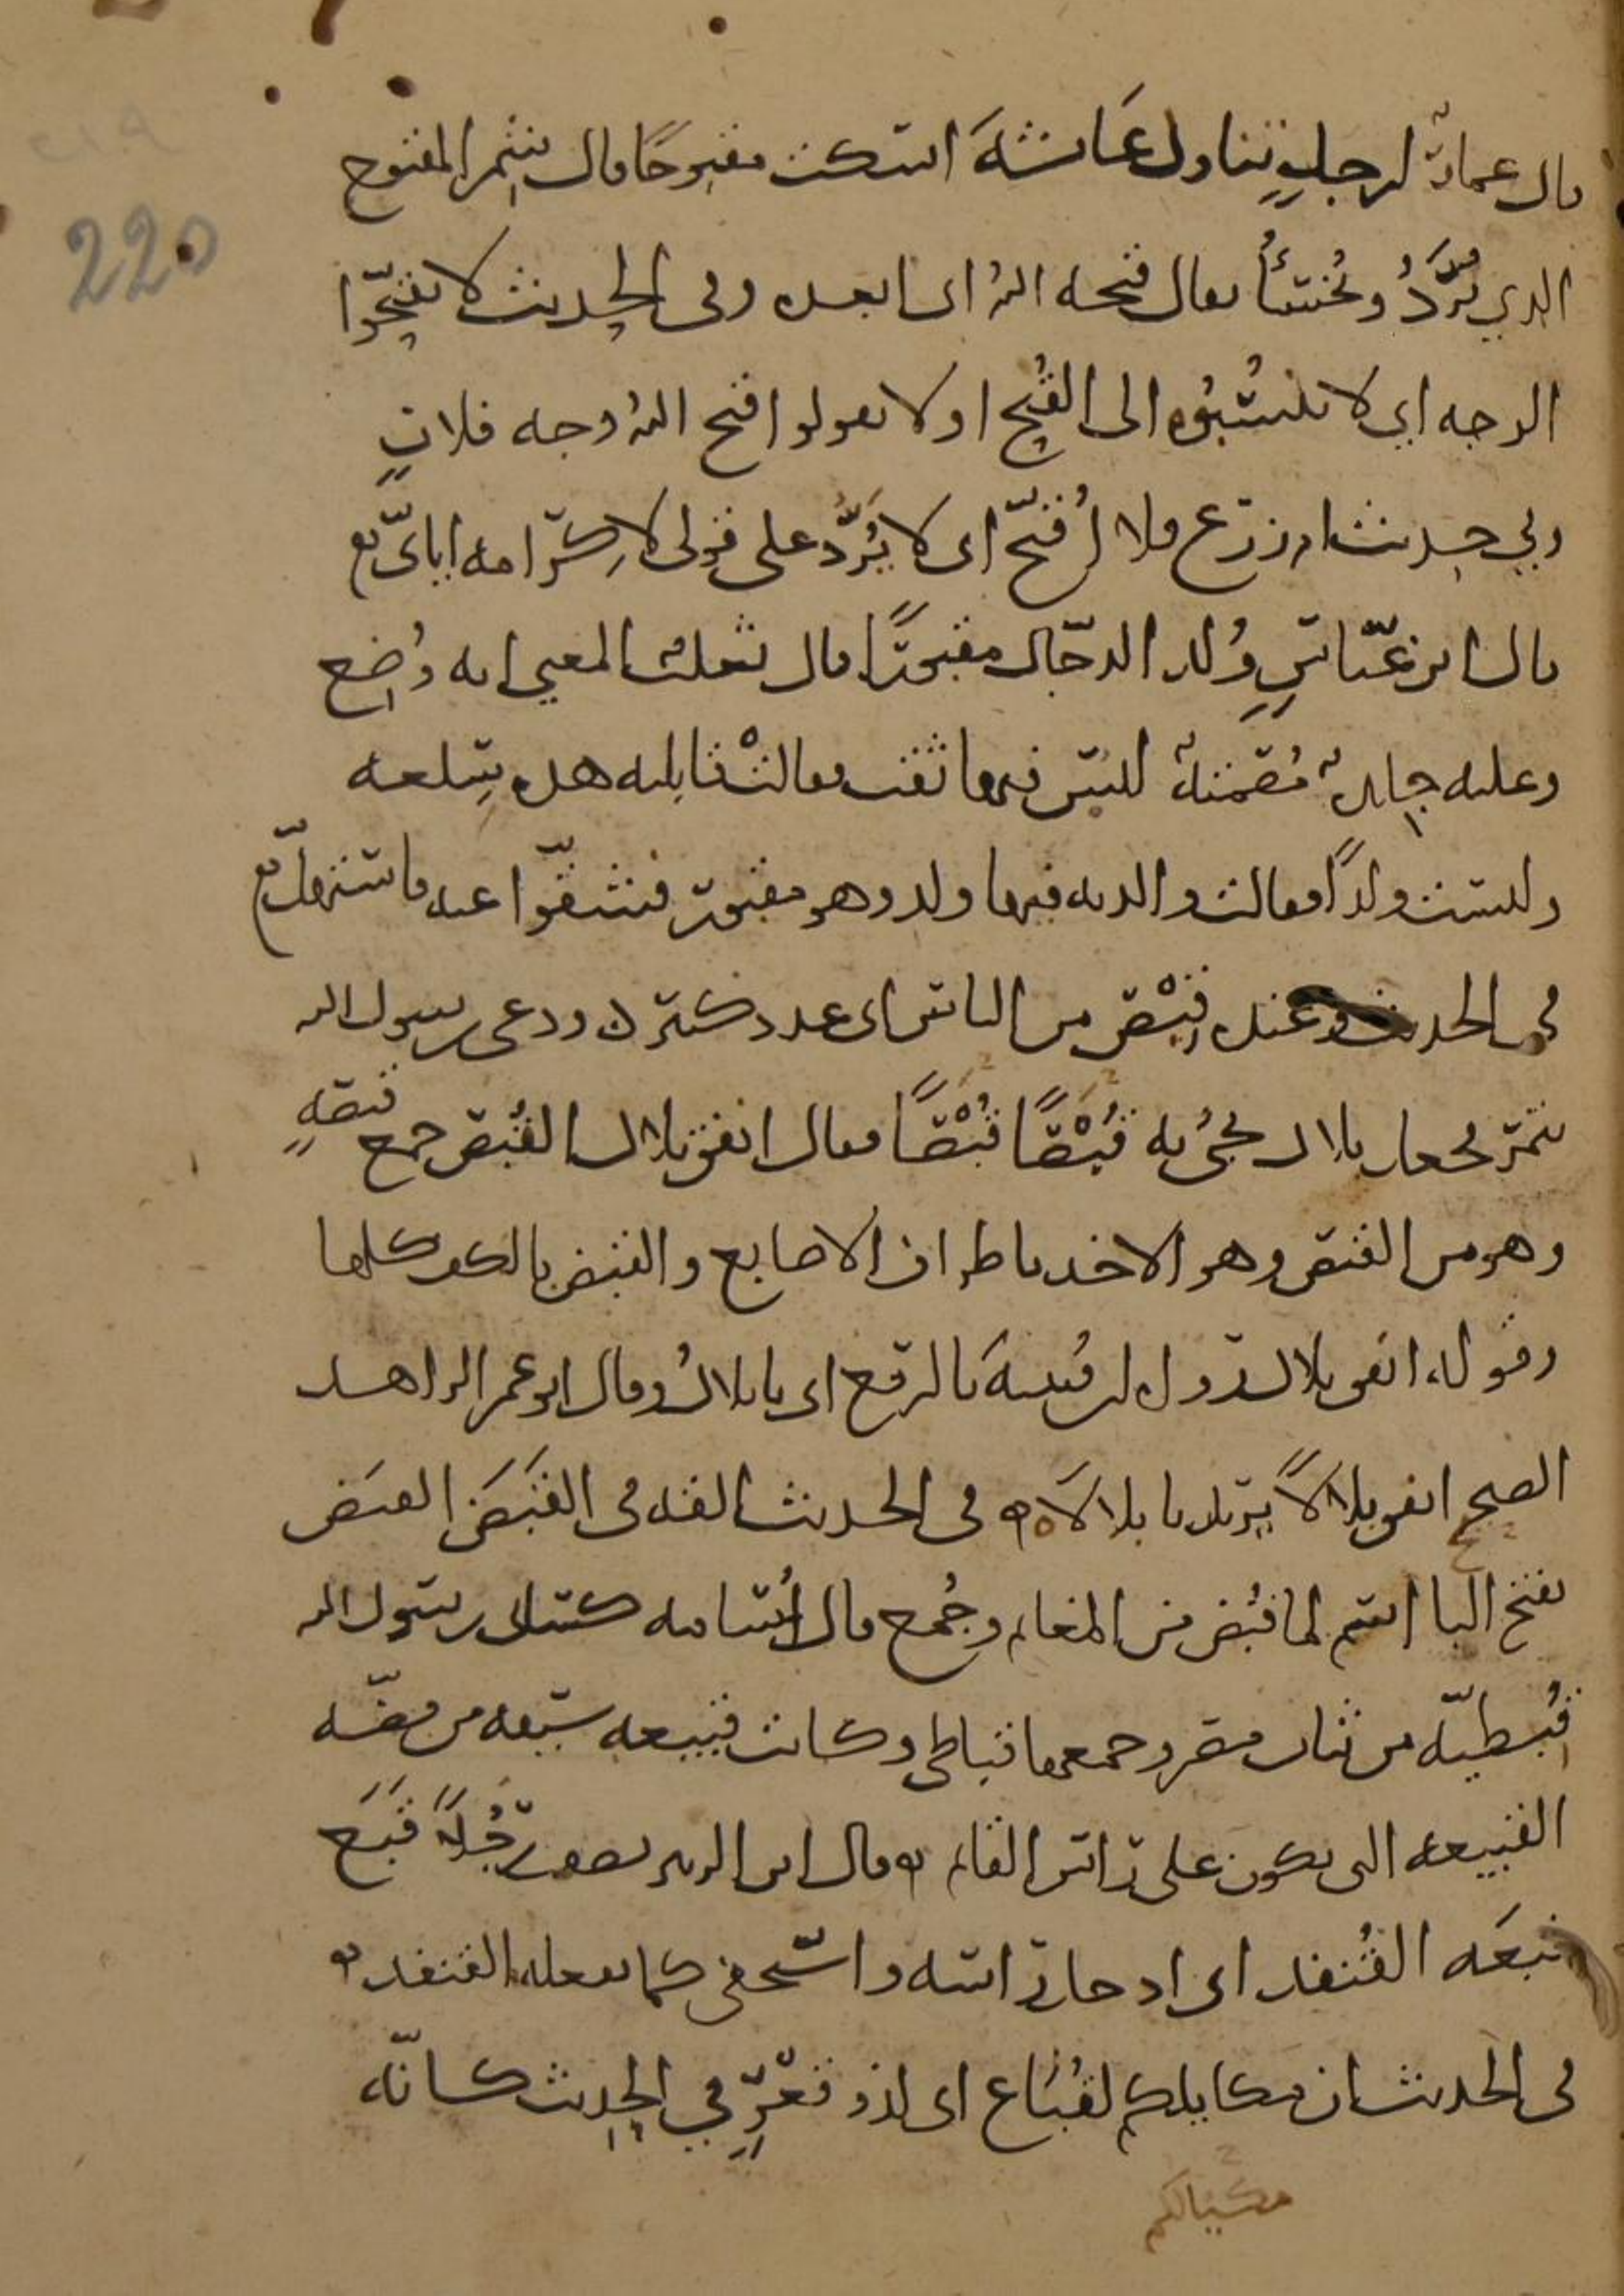 220
قال عمارٌ لرجلٍ تناول عائشةَ اسكت مقبوحًا قال شمر المقبوح
الذي يُرَدُّ ويُخسَأُ يقال قبحه الله اى ابعده وفى الحديث لا تقبّحوا
الوجه اي لا تنسُبُوه الى القُبح او لا تقولوا قبح الله وجه فلانٍ
وفي حديث ام زرع فلا اُقبّح اى لا يُرَدُّ على قولى لاكرامه اياىّ
قال ابن عبّاسٍ وُلد الدجّال مقبورًا قال ثعلب المعني انه وُضع
وعليه جلدةٌ مُصمتةٌ ليس فيها ثقب فقالتْ قابلته هذه سِلعه
وليست ولدًا فقالت والدته فيها ولد وهو مقبور فشقّوا عنه فاستهلّ
فى الحديث وعنده قِبْص من الناس اى عدد كثير ودعى رسول الله
بتمر فجعل بلال يجئ به قُبَصًا قُبَصًا فقال انفق بلال القُبَص جمع قبصهٍ
وهو من القبص وهو الاخذ باطراف الاصابع والقبض بالكف كلها
وقوله انفق بلال رواه ابن قُتيبةَ بالرفع اى يا بلالُ وقال ابو عمر الزاهد
الصحيح انفق بلالاً يريد يا بلالاَه فى الحديث القه فى القَبَضَ القبَض
بفتح البا اسم لما قُبض من المغانم وجُمع قال اُسامه كسانى رسول الله
قُبطيّه من ثياب مصر وجمعها قباطى وكانت قبيعه سيفه من فضه
القبيعه التى تكون على راس القائم وقال ابن الزبير يصف رَجُلاً قَبَع
قبعَه القُنفد اى ادخل راسه واستخفى كما يفعله القنفد
فى الحديث ان مكايلكم لقُبَاع اى لذو قعْرٍ في الحديث كانّه
مكيالكم